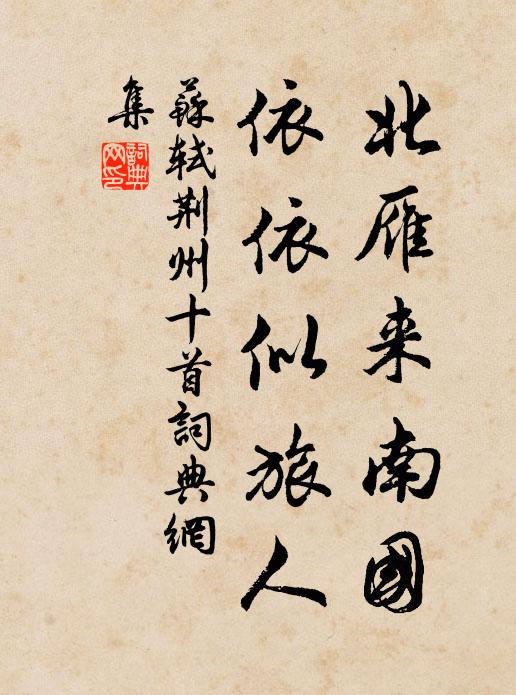 北雁来南國
依依似旅人
蘇軾荆州十首詞典網
集
詞典
网印